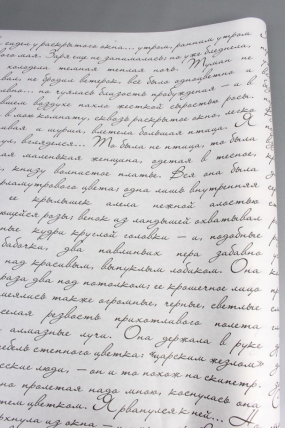 я сидел у раскрытого окна... утром, ранним утром
вого мая. Заря еще не занималась; но уже бледнела,
холодела темная теплая ночь. Туман не
вал, не бродил ветерок, все было одноцветно
авно... но чуялась близость пробуждения — и в
вшем воздухе пахло жесткой сыростью росы.
в мою комнату, сквозь раскрытое окно, легко
ивая и шурша, влетела большая птица. Я
ул, вгляделся... То была не птица, то была
ая маленькая женщина, одетая в тесное,
, книзу волнистое платье. Вся она была
рламутрового цвета; одна лишь внутренняя
ее крылышек алела нежной алостью
ющейся розы; венок из ландышей охватывал
ные кудри круглой головки — и, подобные
бабочки, два павлиньих пера забавно
над красивым, выпуклым лобиком. Она
раза два под потолком; ее крошечное лицо
меялись также огромные, черные, светлые
селая резвость прихотливого полета
алмазные лучи. Она держала в руке
ебель степного цветка: "царским жезлом"
сские люди, — он и то похож на скипетр.
но пролетая надо мною, коснулась она
тем цветком. Я рванулся к ней... Н
рхнула из окна —